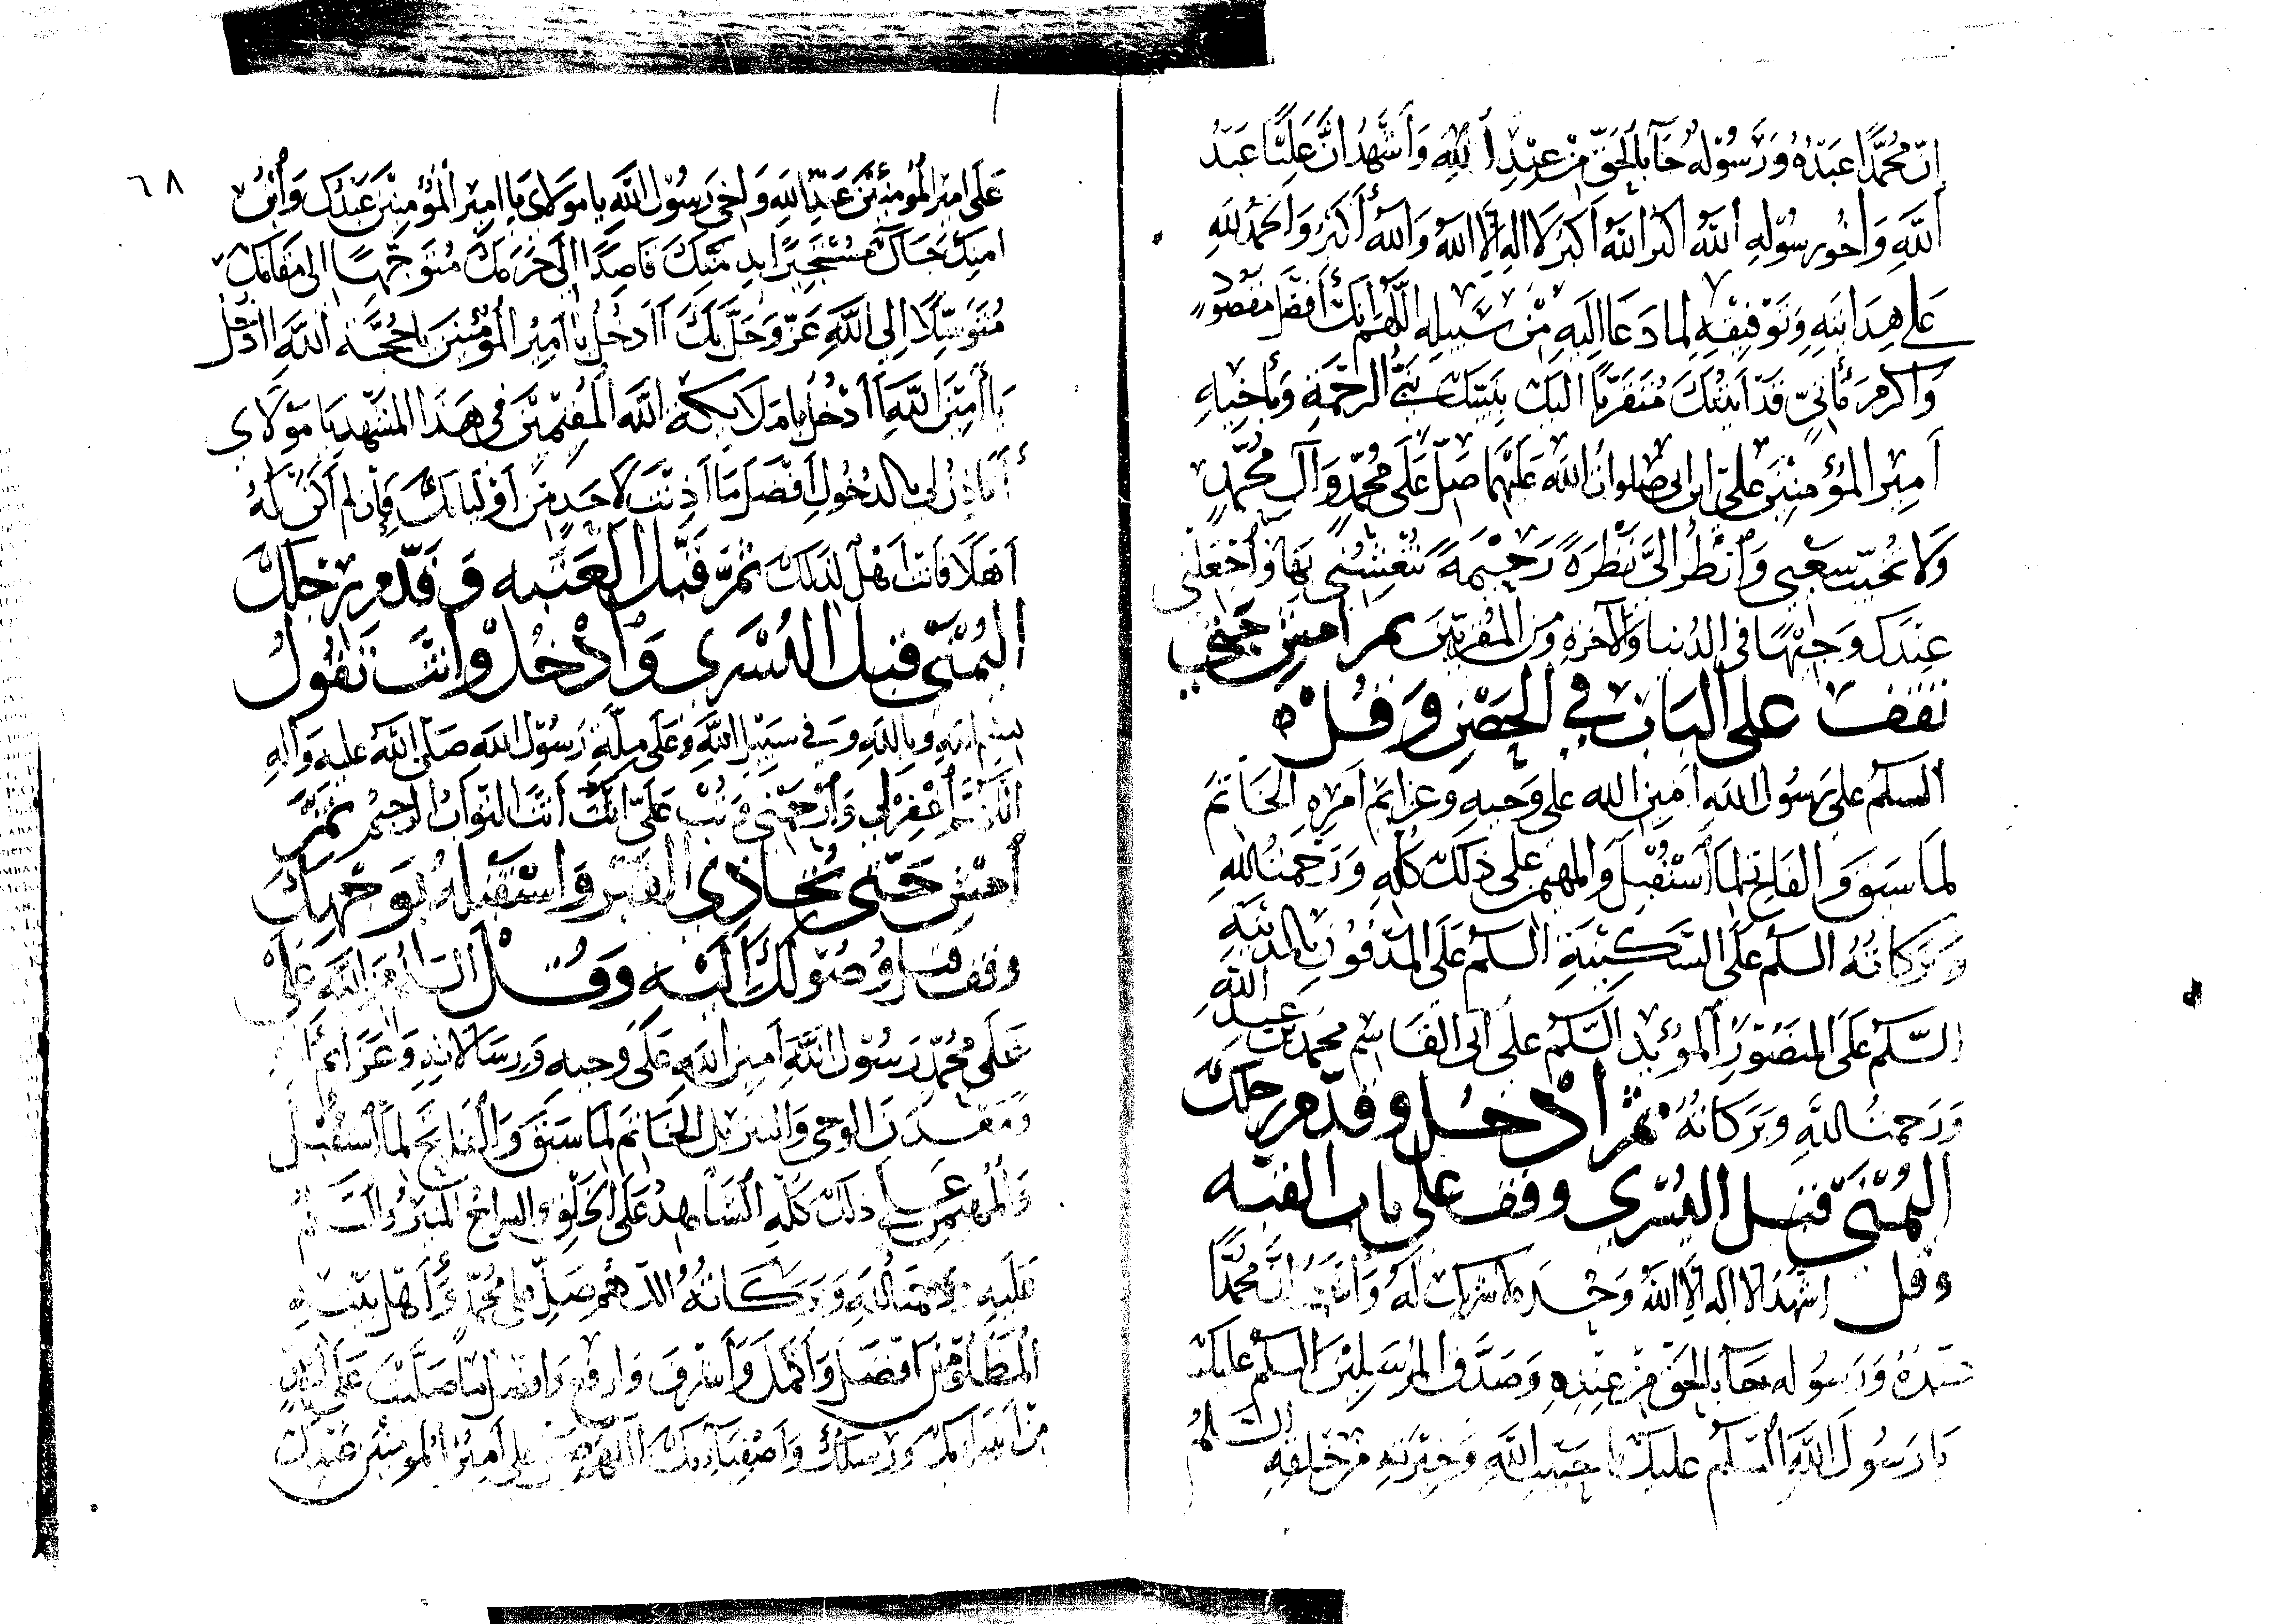 ان محمدا عبده ورسوله جآء بالحق من عند الله وأشهد ان عليا عبد
الله وأخو رسوله الله أكبر الله أكبر لا اله الا الله والله أكبر والحمد لله
على هدايته وتوفيقه لما دعا اليه من سبيله اللهم انك أفضل مقصود
وأكرم مأتي قد أتيتك متقربا اليك بنبيك نبي الرحمة وبأخيه
أمير المؤمنين علي ابن ابي صلوات الله عليهما صل على محمد وآل محمد
ولا تخيب سعيي وانظر الي نظرة رحيمة تنعشني بها واجعلني
عندك وجيها في الدنيا والآخرة ومن المقربين ثم امش حتى
تقف على الباب في الحصن وقل
السلم على رسول الله أمين الله على وحيه وعزائم امره الخاتم
لما سبق والفاتح لما استقبل والمهيمن على ذلك كله ورحمت الله
وبركاته السلم على السكينة السلم على المدفون بالمدينة
السلم على المنصور المؤيد السلم على أبي القاسم محمد بن عبد الله
ورحمت الله وبركاته ثم ادخل وقدم رجلك
اليمنى قبل اليسرى وقف على باب القبه
وقل اشهد الا اله الا الله وحده لا شريك له وأشهد ان محمدا
عبده ورسوله جآء بالحق من عنده وصدق المرسلين السلم عليك
يا رسول الله السلم عليك يا حبيب الله وخيرته من خلقه السلم
٦٨
على امير المؤمنين عبد الله وأخي رسول الله يا مولاي يا امير المؤمنين عبدك وابن
امتك جآك مستجيرا بذمتك قاصدا الى حرمك متوجها الى مقامك
متوسلا الى الله عز وجل بك أادخل يا أمير المؤمنين يا حجة الله أادخل
يا أمين الله أادخل يا ملائكة الله المقيمين في هذا المشهد يا مولاي
أتأذن لي بالدخول أفضل ما أذنت لأحد من أوليائك فإن لم أكن له
أهلا فانت أهل لذلك ثم قبل العتبه وقدم رجلك
اليمنى قبل اليسرى وادخل وأنت تقول
بسم الله وبالله وفي سبيل الله وعلى ملة رسول الله صلى الله عليه وآله
اللهم اغفر لي وارحمني وتب علي انك أنت التواب الرحيم ثم
امش حتى تحاذي القبر واستقبله بوجهك
وقف قبل وصولك اليه وقل السلم من الله على
على محمد رسول الله أمين الله على وحيه ورسالاته وعزائم
ومعدن الوحي والتنزيل الخاتم لما سبق والفاتح لما استقبل
والمهيمن على ذلك كله الشاهد على الخلق والسراج المنير والسلم
عليه ورحمت الله وبركاته اللهم صل على محمد وأهل بيته
المظلومين افضل وأكمل وأشرف وارفع ما صليت على
من انبيائك ورسلك وأصفيائك اللهم صل على أمير المومنين عبدك